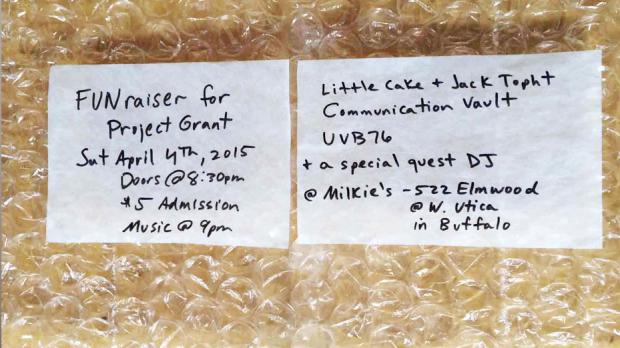 FUNraiser for
Project Grant
Sat April 4th, 2015
Doors @ 8:30pm
$5 Admission
Music @ 9pm
Little Cake + Jack Topht
Communication Vault
UVB76
+ a special guest DJ
@ Milkie's - 522 Elmwood
@ W. Utica
in Buffalo